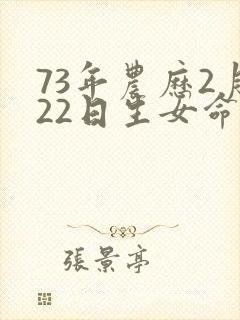 73年農历2月
22日生女命
張景亭